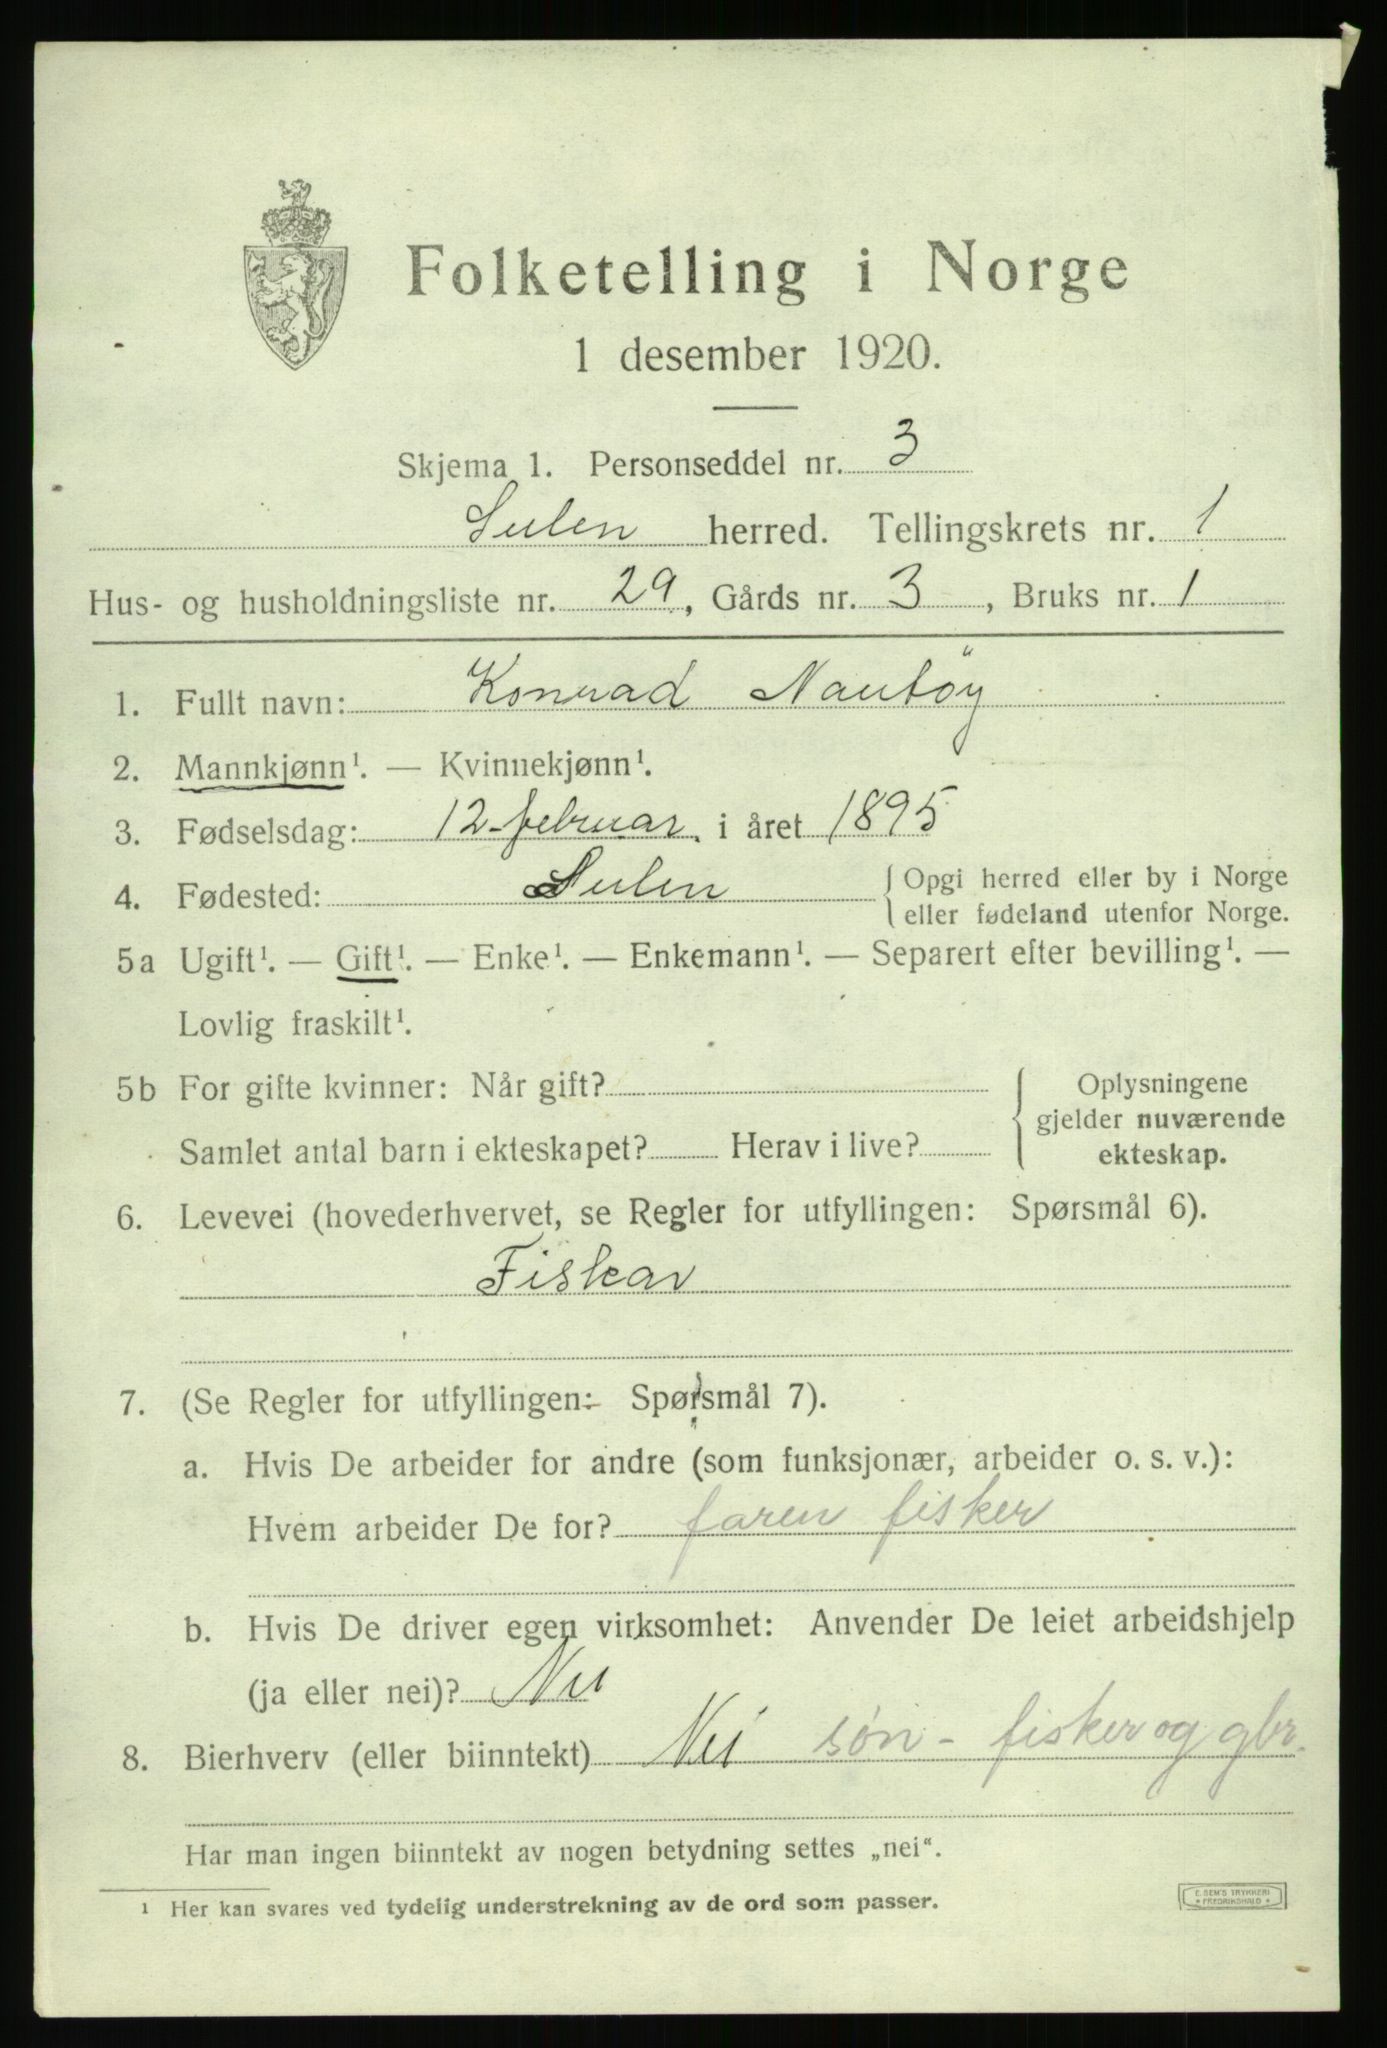 Folketelling i Norge
1 desember 1920.
Skjema 1. Personseddel nr. 3
Sulen herred. Tellingskrets nr. 1
Hus- og husholdningsliste nr. 29, Gårds nr. 3, Bruks nr. 1
1. Fullt navn: Konrad Nautöy
2. Mannkjønn¹. — Kvinnekjønn¹.
3. Fødselsdag: 12 februar i året 1895
4. Fødested: Sulen { Opgi herred eller by i Norge
eller fødeland utenfor Norge.
5a Ugift¹. — Gift¹. — Enke¹. — Enkemann¹. — Separert efter bevilling¹. —
Lovlig fraskilt¹.
5b For gifte kvinner: Når gift? { Oplysningene
gjelder nuværende
Samlet antal barn i ekteskapet? Herav i live? ekteskap.
6. Levevei (hovederhvervet, se Regler for utfyllingen: Spørsmål 6).
Fiskar
7. (Se Regler for utfyllingen: Spørsmål 7).
a. Hvis De arbeider for andre (som funksjonær, arbeider o. s. v.):
Hvem arbeider De for? faren fisker
b. Hvis De driver egen virksomhet: Anvender De leiet arbeidshjelp
(ja eller nei)? Nei
8. Bierhverv (eller biinntekt) Nei søn - fisker og gbr.
Har man ingen biinntekt av nogen betydning settes „nei“.
¹ Her kan svares ved tydelig understrekning av de ord som passer.
E. SEM'S TRYKKERI
* FREDRIKSHALD *